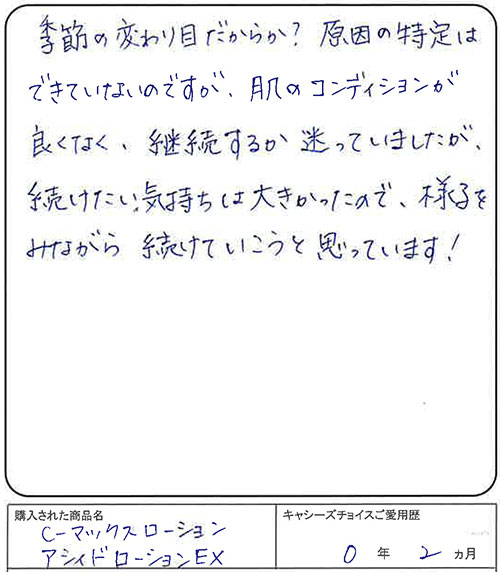 季節の変わり目だからか？ 原因の特定は
できていないのですが、肌のコンディションが
良くなく、継続するか迷っていましたが、
続けたい気持ちは大きかったので、様子を
みながら続けていこうと思っています！
購入された商品名
C-マックスローション
アシィドローションEX
キャシーズチョイスご愛用歴
0年2ヵ月